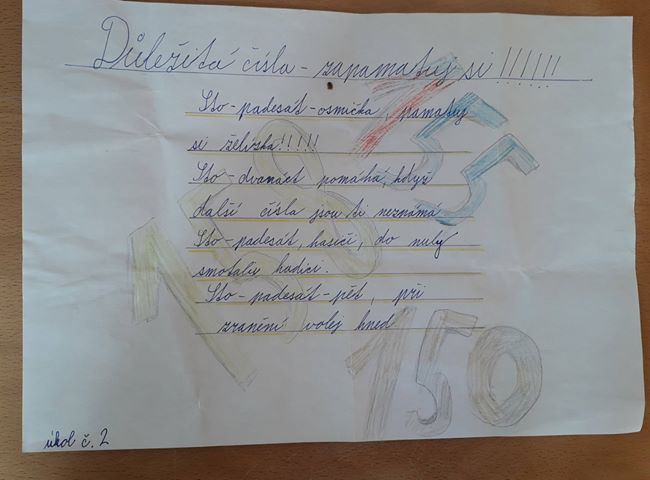 Důležitá čísla - zapamatuj si !!!!!!
Sto - padesát - osmička, pamatuj
si želízka!!!!!
Sto - dvanáct pomáhá, když
další čísla jsou ti neznámá
Sto - padesát, hasiči, do nuly
smotaliv hadici.
Sto - padesát - pět, při
zranění volej hned
158
155
150
úkol č. 2